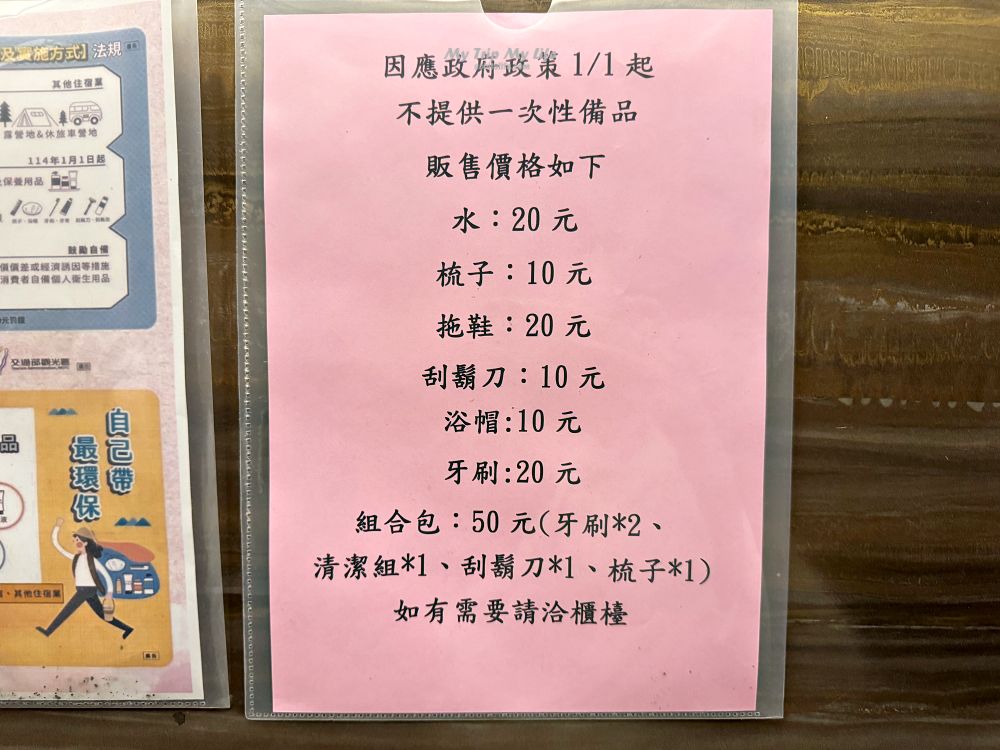 及實施方式】法規
其他住宿業
露營地&休旅車營地
114年1月1日起
保養用品
鼓勵自備
價價差或經濟誘因等措施
消費者自備個人衛生用品
交通部觀光署
品
自己帶
最環保
、其他住宿業
廣告
My Trip My Life
因應政府政策 1/1 起
不提供一次性備品
販售價格如下
水：20 元
梳子：10 元
拖鞋：20 元
刮鬍刀：10 元
浴帽:10 元
牙刷:20 元
組合包：50 元(牙刷*2、
清潔組*1、刮鬍刀*1、梳子*1)
如有需要請洽櫃檯